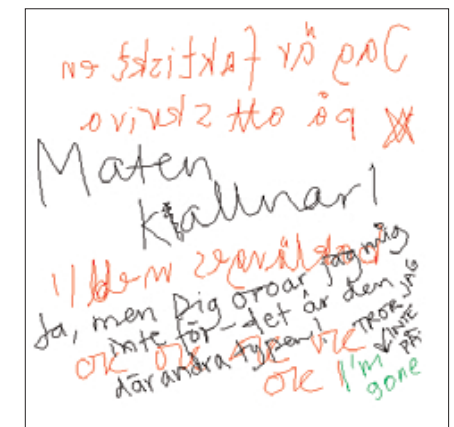 Jag är faktiskt en
på att skriva
Maten
kallnar!
Ja, men Dig oroar jag mig
inte för - det är den
där andra typen!
TROR JAG
INTE
PÅ.
I'm
gone